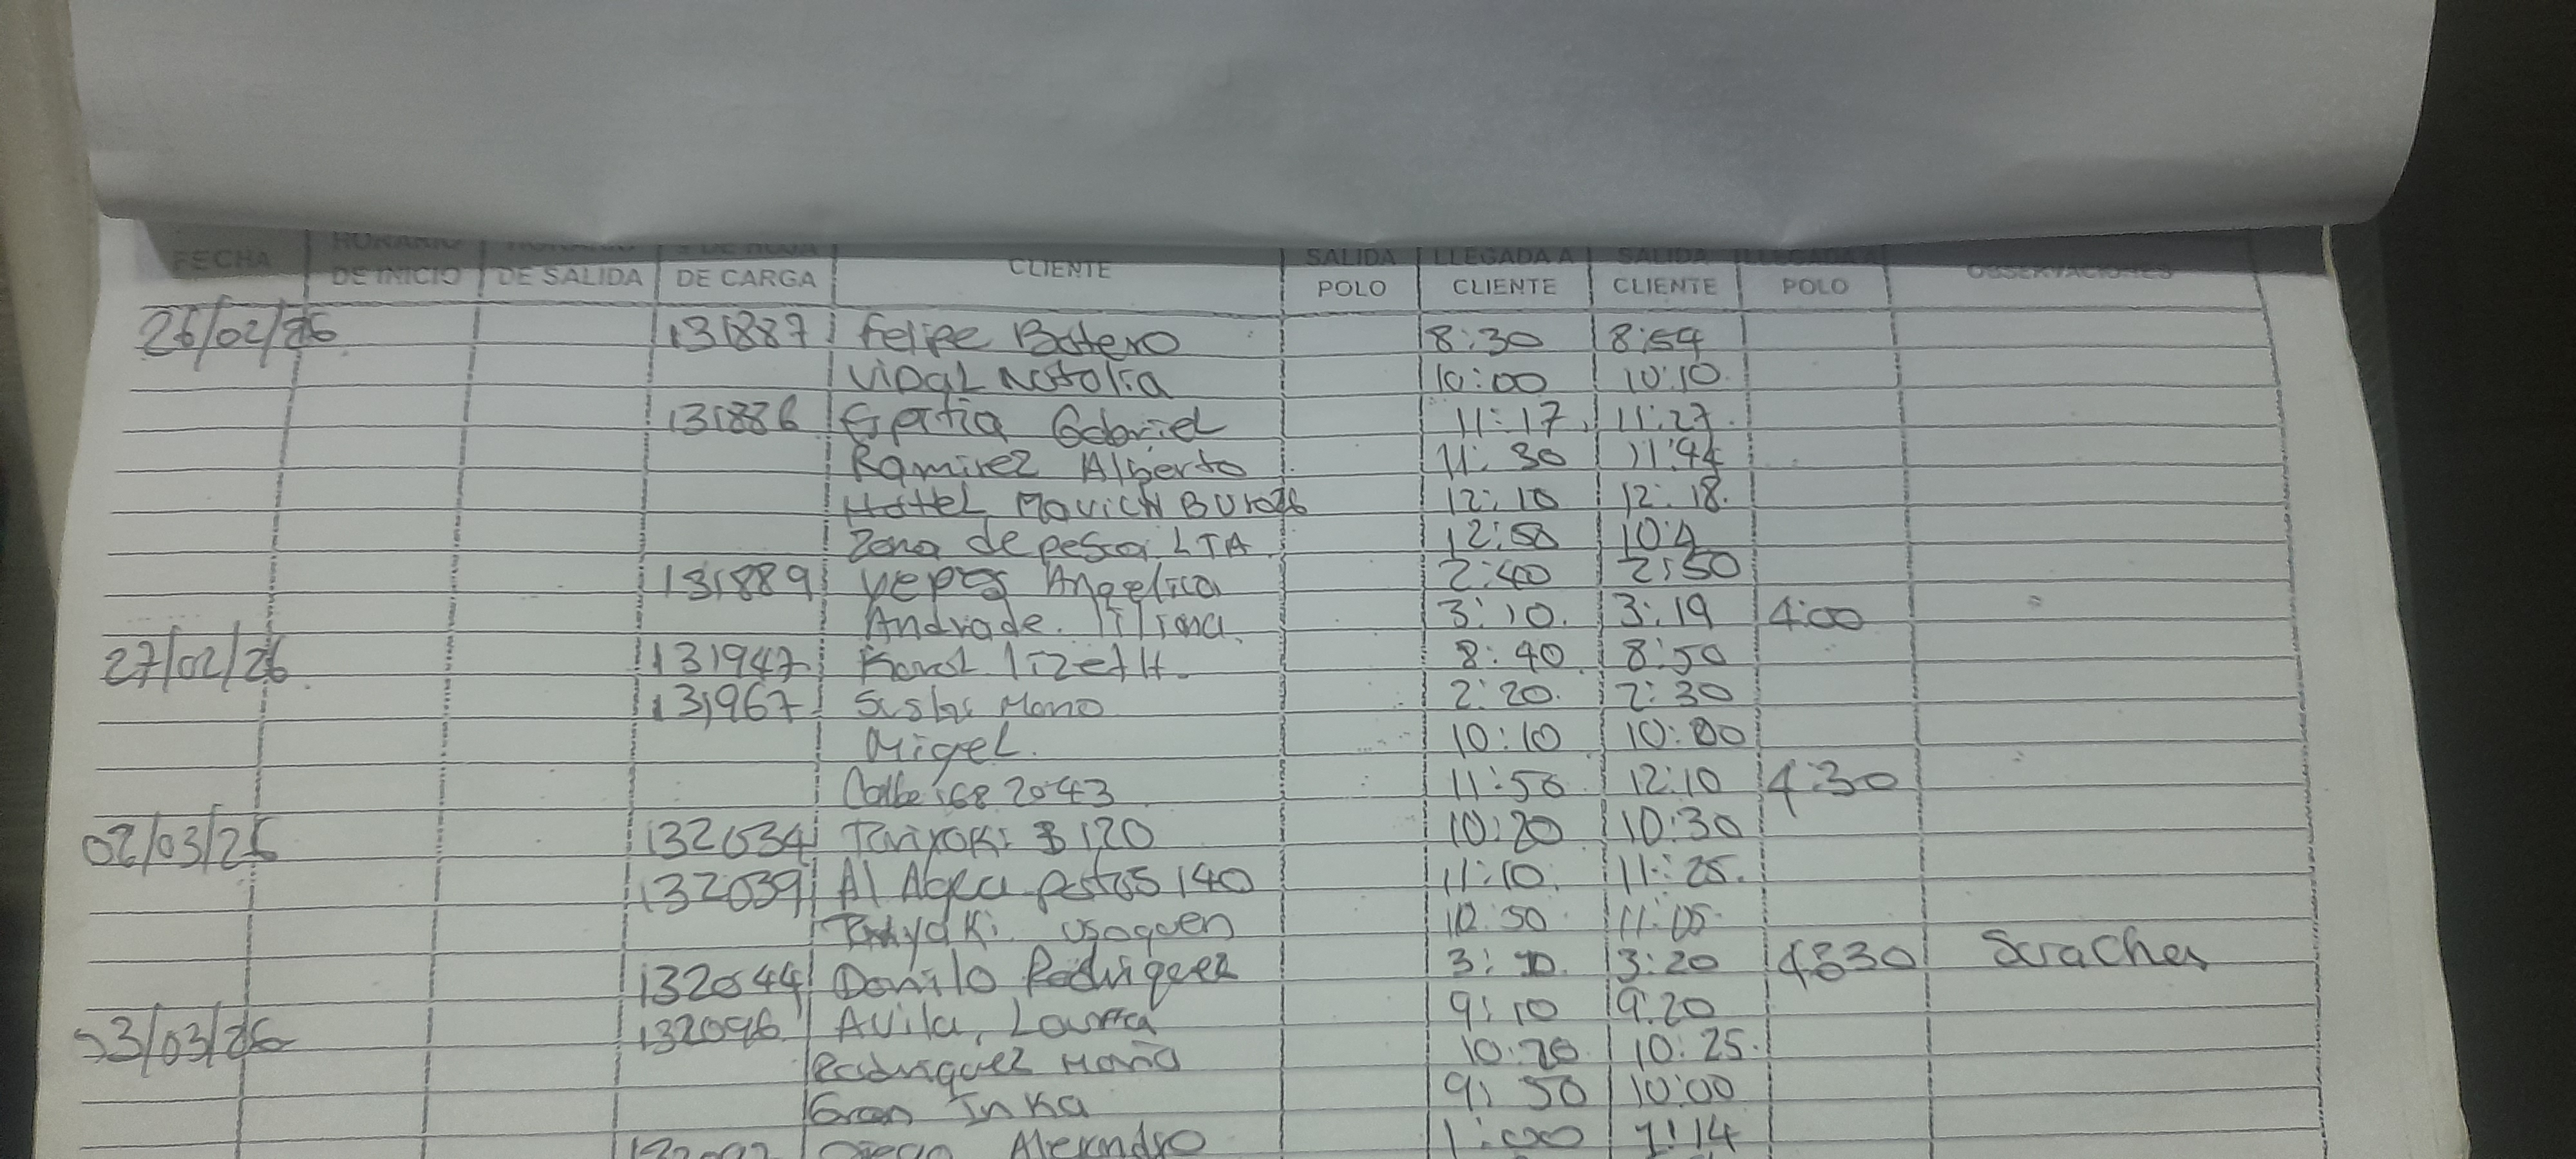 FECHA HORARIO DE INICIO HORARIO DE SALIDA # DE HOJA DE CARGA CLIENTE SALIDA POLO LLEGADA A CLIENTE SALIDA CLIENTE LLEGADA A POLO OBSERVACIONES
26/02/26 131887 Felipe Botero 8:30 8:54
Vidal Natalia 10:00 10:10
131886 Gabriel 11:17 11:27
Ramirez Alberto 11:30 11:44
Hotel Movich Buro26 12:10 12:18
Zona de pesca LTA 12:50 10:4
131889 Yepes Angelica 2:40 2:50
Andrade. 3:10 3:19 4:00
27/02/26 131947 Karol lizeth. 8:40 8:50
131967 2:20 2:30
Migel. 10:10
20-43 11:50 12:10 4:30
02/03/26 132034 120 10:20 10:30
132039 Al Agua 140 11:10 11:25
usaquen 10:50 11:05
132044 Danilo Rodriguez 3:10 3:20 Suachas
03/03/26 132096 Avila, Laura 9:10 9:20
Rodriguez Maria 10:20 10:25
Gran Inka 9:50 10:00
Diego Alejandro 1:00 1:14